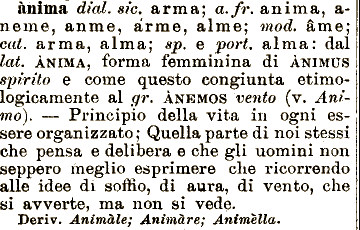 ànima dial. sic. arma; a. fr. anima, a-
neme, anme, àrme, alme; mod. âme;
cat. arma, alma; sp. e port. alma: dal
lat. ÀNIMA, forma femminina di ÀNIMUS
spirito e come questo congiunta etimo-
logicamente al gr. ÀNEMOS vento (v. Ani-
mo). — Principio della vita in ogni es-
sere organizzato; Quella parte di noi stessi
che pensa e delibera e che gli uomini non
seppero meglio esprimere che ricorrendo
alle idee di soffio, di aura, di vento, che
si avverte, ma non si vede.
Deriv. Animàle; Animàre; Animèlla.